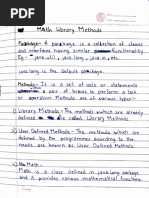 Math Library Methods
Package - A package is a collection of classes
and interfaces having similar functionality.
Eg - java.util, java.lang, java.io etc.
java.lang is the default package.
Methods: It is a set of code or statements
Operations. Methods are of various types:-
1) Library Methods - The methods which are already
defined in the library class.
2) User Defined Methods - The methods which are
defined by the programmer according to the
needs are known as User Defined Methods.
Math:
Math is a class defined in java.lang package
and it provides various mathematical functions